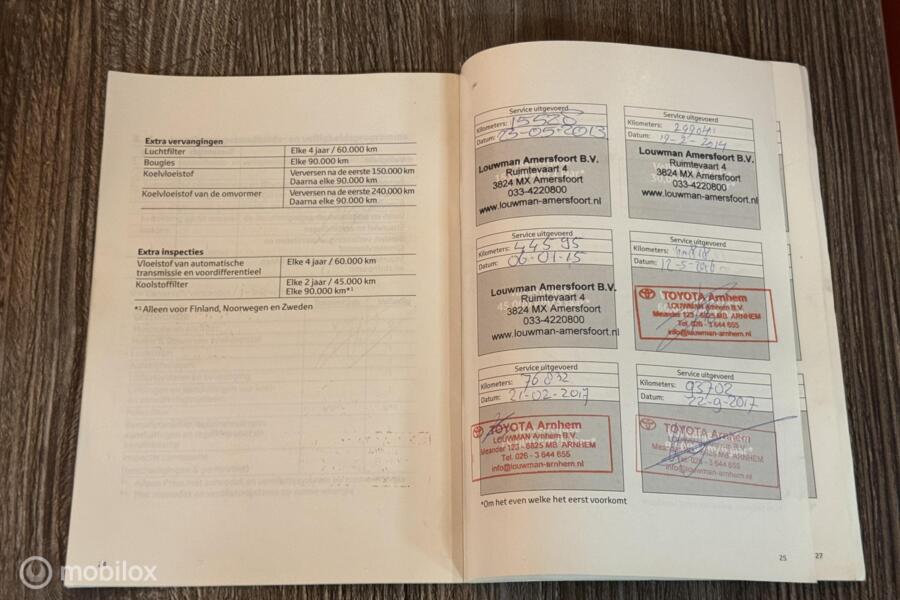 Extra vervangingen
Luchtfilter Elke 4 jaar / 60.000 km
Bougies Elke 90.000 km
Koelvloeistof Verversen na de eerste 150.000 km
Daarna elke 90.000 km
Koelvloeistof van de omvormer Verversen na de eerste 240.000 km
Daarna elke 90.000 km
Extra inspecties
Vloeistof van automatische
transmissie en voordifferentieel
Elke 4 jaar / 60.000 km
Koolstoffilter Elke 2 jaar / 45.000 km
Elke 90.000 km*¹
*¹ Alleen voor Finland, Noorwegen en Zweden
Service uitgevoerd
Kilometers: 15526
Datum: 23-05-2013
Louwman Amersfoort B.V.
Ruimtevaart 4
3824 MX Amersfoort
033-4220800
www.louwman-amersfoort.nl
Service uitgevoerd
Kilometers: 29904
Datum: 19-2-2014
Louwman Amersfoort B.V.
Ruimtevaart 4
3824 MX Amersfoort
033-4220800
www.louwman-amersfoort.nl
Service uitgevoerd
Kilometers: 44595
Datum: 06-01-15
Louwman Amersfoort B.V.
Ruimtevaart 4
3824 MX Amersfoort
033-4220800
www.louwman-amersfoort.nl
Service uitgevoerd
Kilometers:
Datum: 12-5-
TOYOTA Arnhem
LOUWMAN Arnhem B.V.
Meander 123 - 6825 MB ARNHEM
Tel. 026 - 3 644 655
info@louwman-arnhem.nl
Service uitgevoerd
Kilometers: 76832
Datum: 21-02-2017
TOYOTA Arnhem
LOUWMAN Arnhem B.V.
Meander 123 - 6825 MB ARNHEM
Tel. 026 - 3 644 655
info@louwman-arnhem.nl
Service uitgevoerd
Kilometers: 93702
Datum: 22-9-2017
TOYOTA Arnhem
LOUWMAN Arnhem B.V.
Meander 123 - 6825 MB ARNHEM
Tel. 026 - 3 644 655
info@louwman-arnhem.nl
*Om het even welke het eerst voorkomt
25
27
mobilox